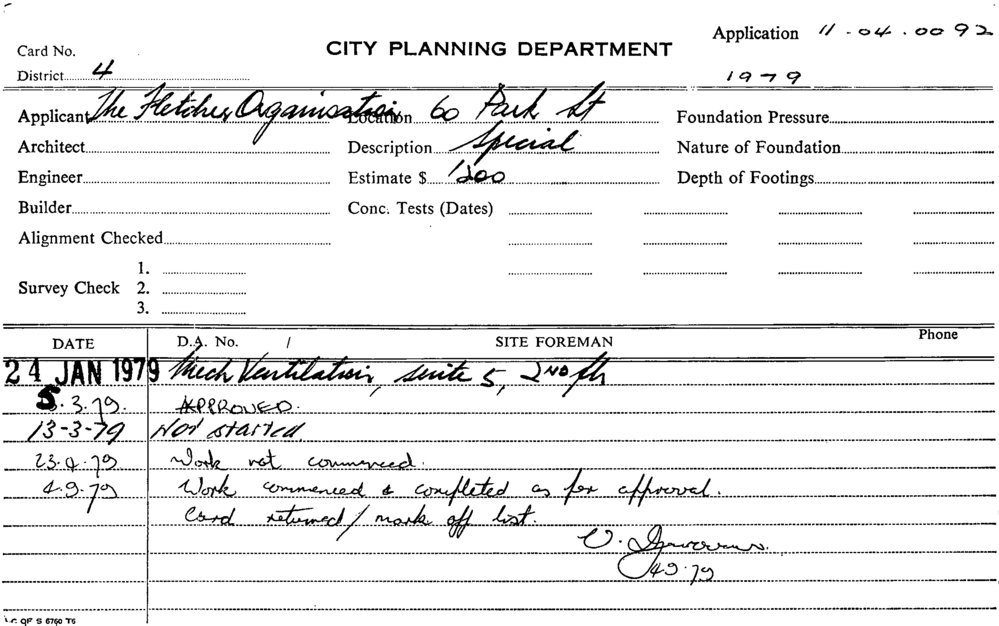 Application 11-04.0092
Card No.
CITY PLANNING DEPARTMENT
District 4
1979
Applicant The Fletcher Organisation Location 60 Park St Foundation Pressure
Architect Description Special Nature of Foundation
Engineer Estimate $ 1200 Depth of Footings
Builder Conc. Tests (Dates)
Alignment Checked
1.
Survey Check 2.
3.
DATE D.A. No. / SITE FOREMAN Phone
24 JAN 1979 Mech Ventilation, suite 5, 2ND flr
5.3.79. APPROVED.
13-3-79 Not started.
23.4.79 Work not commenced.
4.9.79 Work commenced & completed as per approval.
Card returned / mark off list.
4.9.79